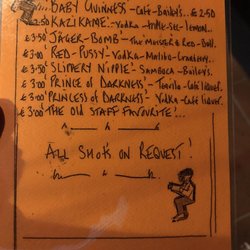 ...BABY GUINNESS - CAFÉ - BAILEY'S... €2.50
€2.50 'KAZIKAME' - VODKA - TRIPLE-SEC - LEMON...
€3.50 'JÄGER-BOMB' - THE MEISTER & RED-BULL.
€3.00 'RED-PUSSY' - VODKA - MALIBU - CRANBERRY...
€3.50 'SLIPPERY NIPPLE' - SAMBUCA - BAILEY'S.
€3.00 'PRINCE OF DARKNESS' - TEQUILA - CAFÉ LIQUEUR.
€3.00 'PRINCESS OF DARKNESS' - VODKA - CAFÉ LIQUEUR.
€3.00 'THE OLD STAFF FAVOURITE'...
ALL SHOTS ON REQUEST!